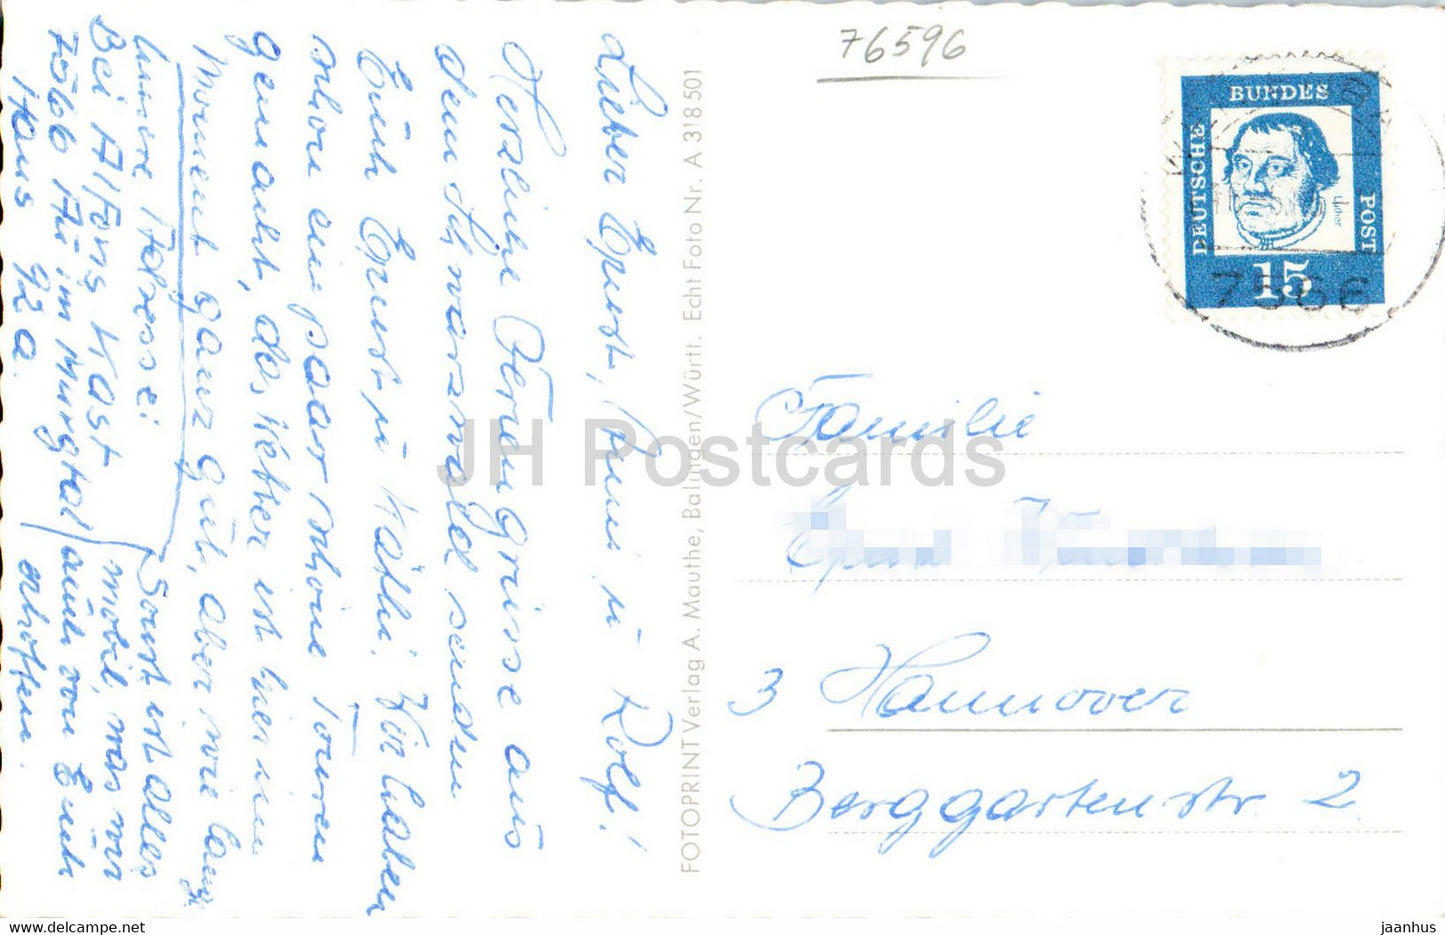 76596
BUNDES
DEUTSCHE
POST
Luther
15
7566
Lieber Ernst, Hanni u Rolf!
Herzliche Feriengrüsse aus
dem Schwarzwald senden
Euch Ernst u Käthi. Wir haben
schon ein paar schöne Touren
gemacht, das Wetter ist hier im
Moment ganz gut, aber wie lang
Unsere Adresse:
Bei Alfons Kast
7566 Au im Murgtal
Haus 92a.
Sonst ist alles
mobil, was wir
auch von Euch
hoffen.
FOTOPRINT Verlag A. Mauthe, Balingen/Württ. Echt Foto Nr. A 318 501
Familie
3 Hannover
Berggartenstr. 2
JH Postcards
www.delcampe.net
jaanhus